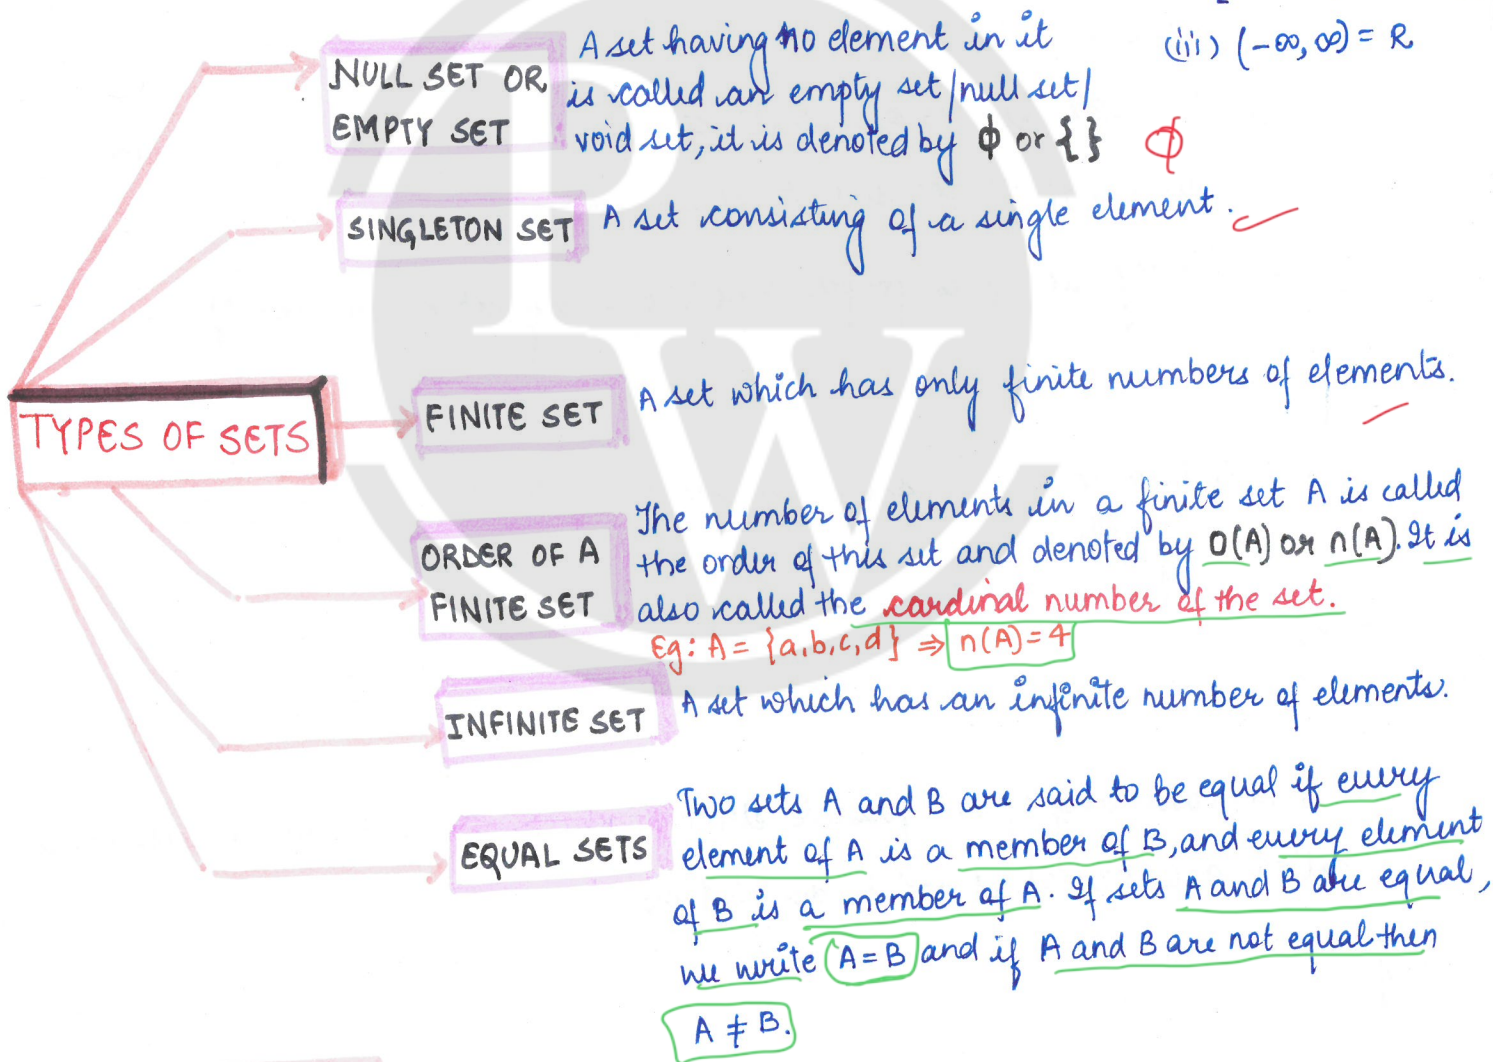 (iii) (-∞, ∞) = R
NULL SET OR
EMPTY SET
A set having no element in it
is called an empty set/null set/
void set, it is denoted by ϕ or { }
ϕ
SINGLETON SET
A set consisting of a single element.
TYPES OF SETS
FINITE SET
A set which has only finite numbers of elements.
ORDER OF A
FINITE SET
The number of elements in a finite set A is called
the order of this set and denoted by O(A) or n(A). It is
also called the cardinal number of the set.
Eg: A = {a,b,c,d} ⇒ n(A)=4
INFINITE SET
A set which has an infinite number of elements.
EQUAL SETS
Two sets A and B are said to be equal if every
element of A is a member of B, and every element
of B is a member of A. If sets A and B are equal,
we write A=B and if A and B are not equal then
A ≠ B.
PW